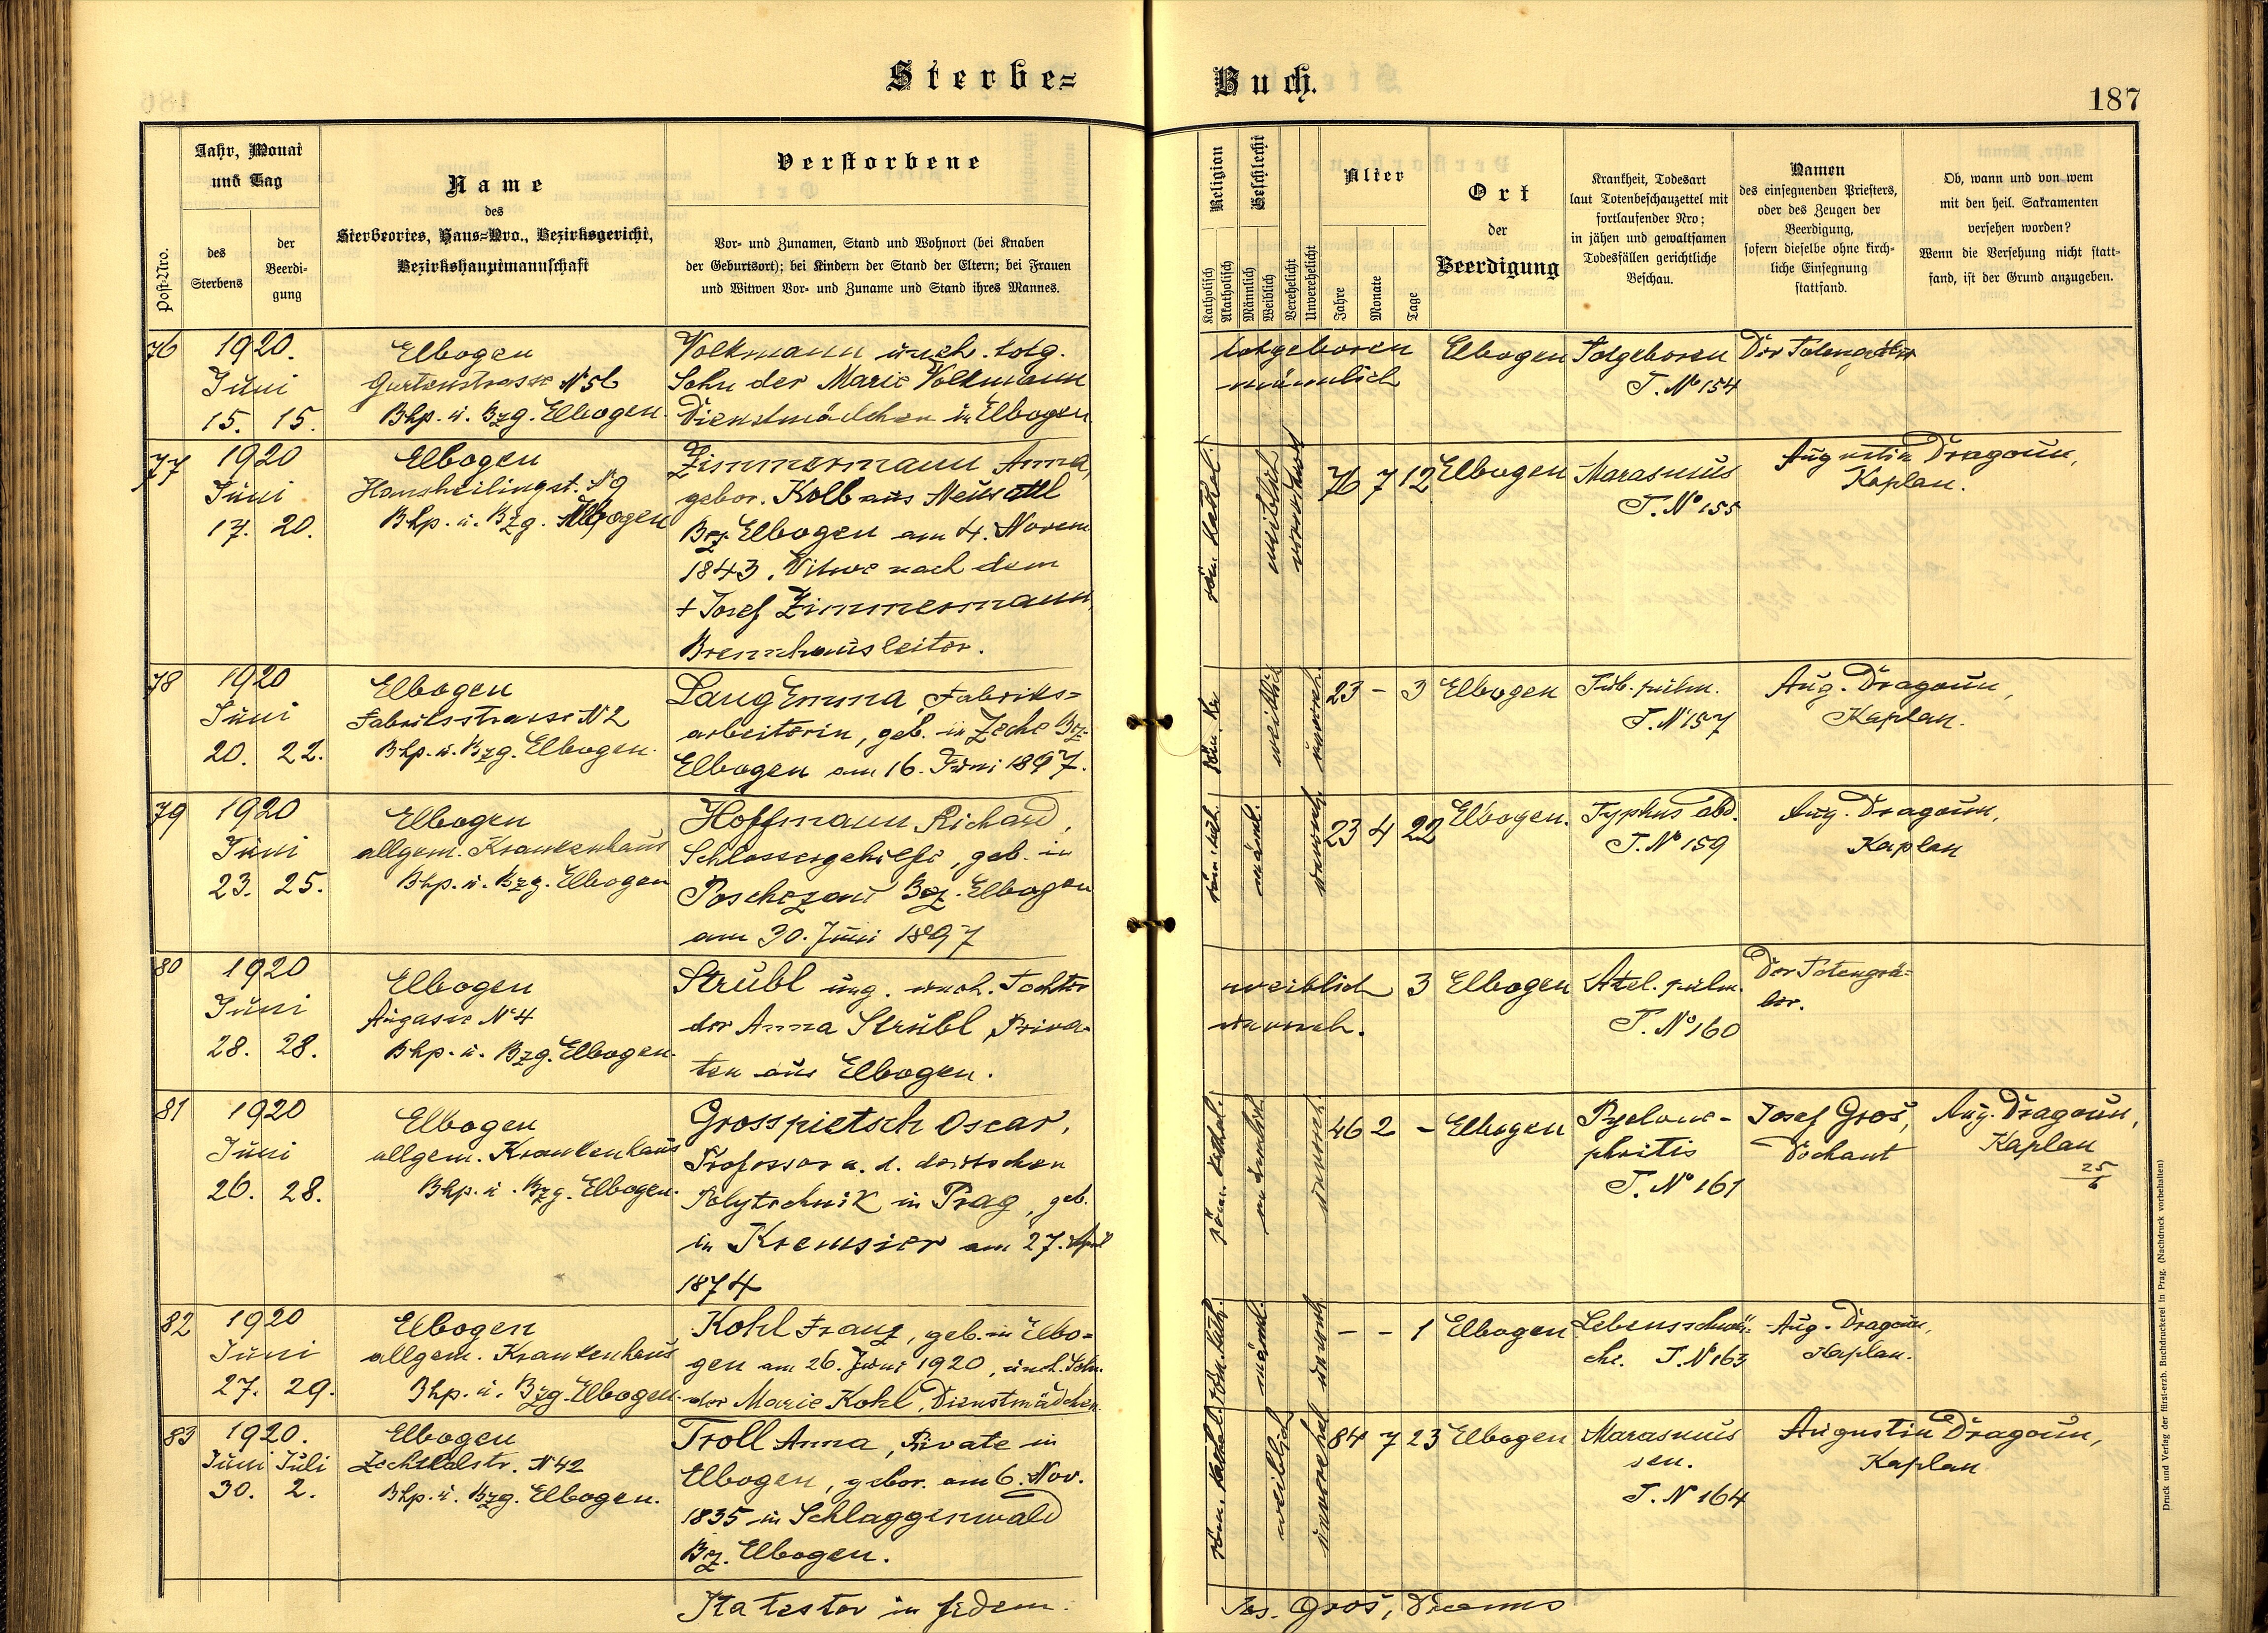 Sterbe=
Buch.
187
Post-Nro.
Jahr, Monat
und Tag
des
Sterbens
der
Beerdi-
gung
Name
des
Sterbeortes, Haus-Nro., Bezirksgericht,
Bezirkshauptmannschaft
Verstorbene
Vor- und Zunamen, Stand und Wohnort (bei Knaben
der Geburtsort); bei Kindern der Stand der Eltern; bei Frauen
und Witwen Vor- und Zuname und Stand ihres Mannes.
Religion
Katholisch
Akatholisch
Geschlecht
Männlich
Weiblich
Verehelicht
Unverehelicht
Alter
Jahre
Monate
Tage
Ort
der
Beerdigung
Krankheit, Todesart
laut Totenbeschauzettel mit
fortlaufender Nro;
in jähen und gewaltsamen
Todesfällen gerichtliche
Beschau.
Namen
des einsegnenden Priesters,
oder des Zeugen der
Beerdigung,
sofern dieselbe ohne kirch-
liche Einsegnung
stattfand.
Ob, wann und von wem
mit den heil. Sakramenten
versehen worden?
Wenn die Versehung nicht statt-
fand, ist der Grund anzugeben.
76
1920.
Juni
15. 15.
Elbogen
Gartenstrasse
Bhp. u. Bzg. Elbogen.
Volkmann uneh. totg.
Sohn der Marie Volkmann
Dienstmädchen in Elbogen
totgeboren
männlich
Elbogen
Totgeboren
T. No 154
Der Totengräber
77
1920
Juni
17. 20.
Elbogen
Hansheilingst. N 9
Bhp. u. Bzg. Elbogen
Zimmermann Anna,
gebor. Kolb aus Neusattl
Bz. Elbogen am 4. Novem
1843, Witwe nach dem
+ Josef Zimmermann,
Brennhausleiter.
röm. kathol.
weiblich
verwitwet
76 7 12
Elbogen
Marasmus
T. No 155
Augustin Dragoun,
Kaplan.
78
1920
Juni
20. 22.
Elbogen
Fabriksstrasse N 2
Bhp. u. Bzg. Elbogen.
Lang Emma, Fabriks=
arbeiterin, geb. in Zeche Bz.
Elbogen am 16. Juni 1897.
röm. ka
weiblich
unvereh.
23 - 3
Elbogen
Tub. pulm.
T. N 157
Aug. Dragoun,
Kaplan.
79
1920
Juni
23. 25.
Elbogen
allgem. Krankenhaus
Bhp. u. Bzg. Elbogen
Hoffmann Richard,
Schlossergehilfe, geb. in
Poschezau Bz. Elbogen
am 30. Juni 1897
röm. kath.
männl.
unvereh.
23 4 22
Elbogen.
Typhus abd.
T. No 159
Aug. Dragoun,
Kaplan
80
1920
Juni
28. 28.
Elbogen
Augasse No 4
Bhp. u. Bzg. Elbogen.
Strubl ung. uneh. Tochter
der Anna Strubl, Priva-
ten aus Elbogen.
weiblich
unvereh.
3
Elbogen
Atel. pulm.
T. No 160
Der Totengrä=
ber.
81
1920
Juni
26. 28.
Elbogen
allgem. Krankenhaus
Bhp. u. Bzg. Elbogen.
Grosspietsch Oscar,
Professor a. d. deutschen
Polytechnik in Prag, geb.
in Kremsier am 27. April
1874
röm. kathol.
männlich
unvereh.
46 2 -
Elbogen
Pyelone-
phritis
T. No 161
Josef Groš,
Dechant
Aug. Dragoun,
Kaplan
25/6
82
1920
Juni
27. 29.
Elbogen
allgem. Krankenhaus
Bhp. u. Bzg. Elbogen.
Kohl Franz, geb. in Elbo=
gen am 26. Juni 1920, uneh. Sohn
der Marie Kohl, Dienstmädchen
röm. kath.
männl.
unvereh.
- - 1
Elbogen
Lebensschwä=
che. T. N 163
Aug. Dragoun,
Kaplan.
83
1920.
Juni Juli
30. 2.
Elbogen
Zechtalstr. N 42
Bhp. u. Bzg. Elbogen.
Troll Anna, Private in
Elbogen, gebor. am 6. Nov.
1835 in Schlaggenwald
Bz. Elbogen.
röm. kathol.
weiblich
unverehel
84 7 23
Elbogen
Marasmus
sen.
T. N 164
Augustin Dragoun,
Kaplan
Ita testor in fidem.
Jos. Groš,
Druck und Verlag der fürst-erzb. Buchdruckerei in Prag. (Nachdruck vorbehalten)